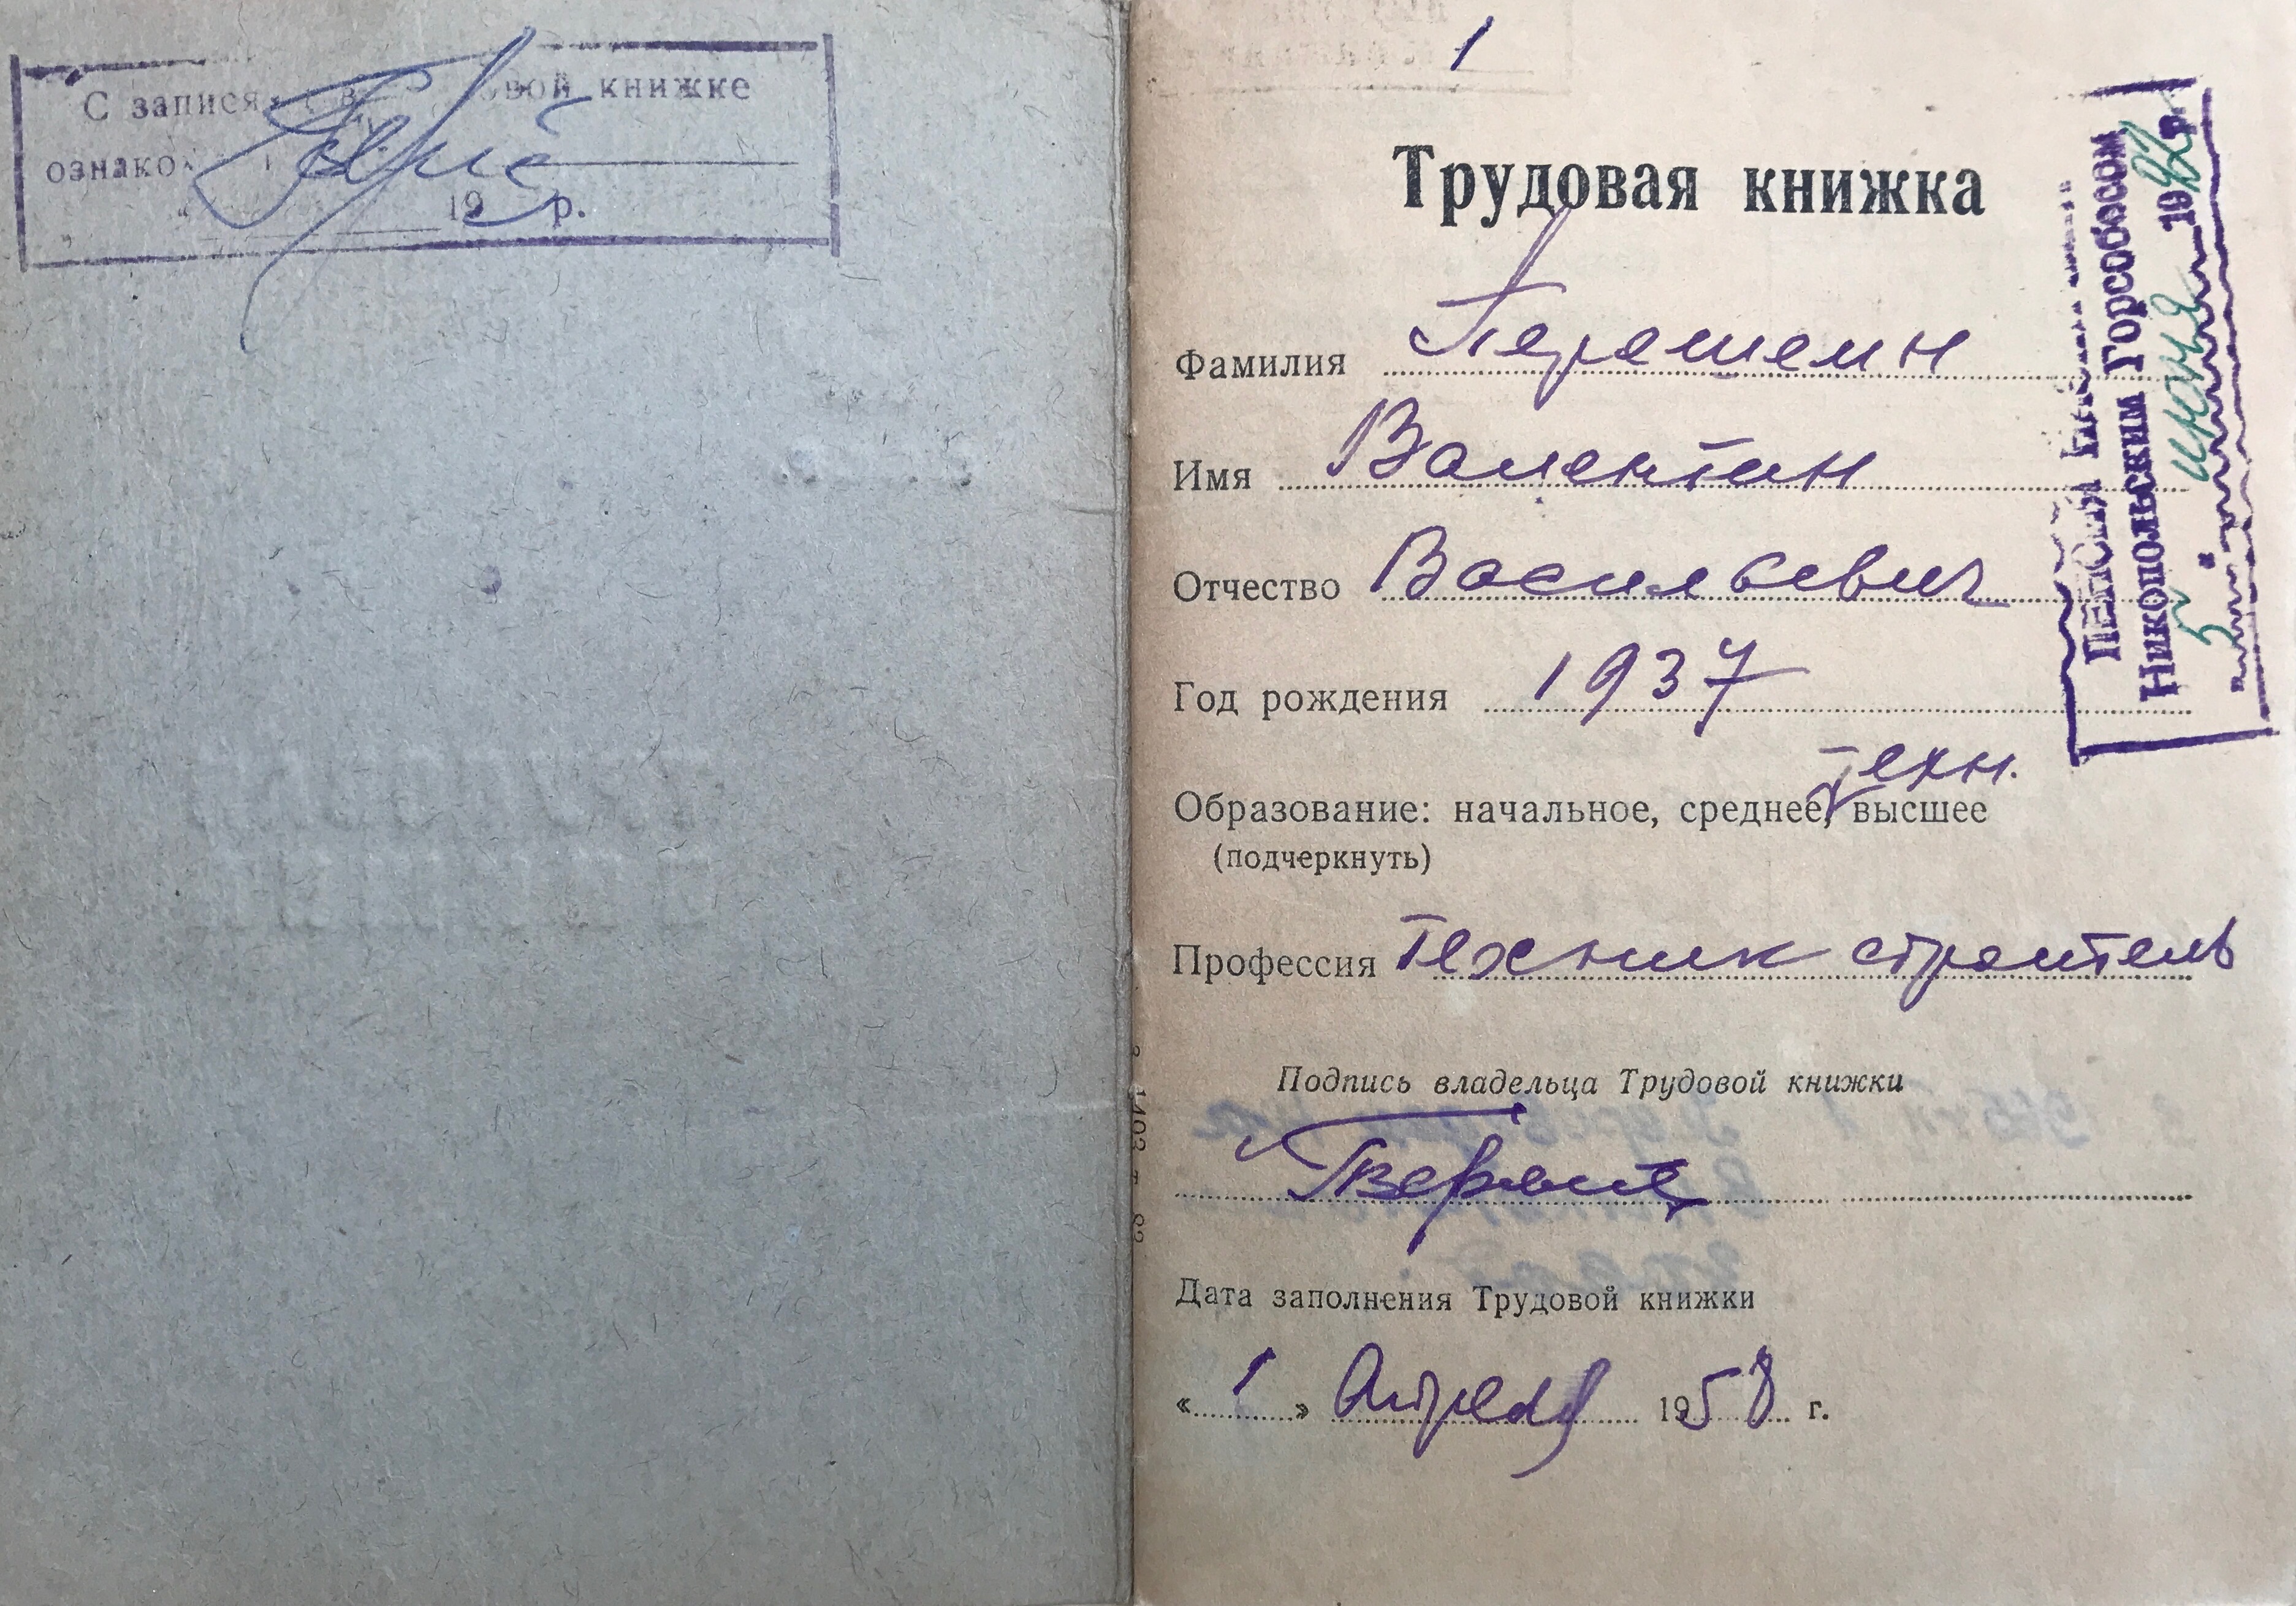 С записями в трудовой книжке
ознаком
" 19 р.
1
Трудовая книжка
Фамилия
Имя Валентин
Отчество Васильевич
Год рождения 1937
техн.
Образование: начальное, среднее, высшее
(подчеркнуть)
Профессия Техник строитель
Подпись владельца Трудовой книжки
Дата заполнения Трудовой книжки
« 1 » Апреля 1958 г.
Пенсия
Никопольским Горсобесом
5 " июня 1992р.